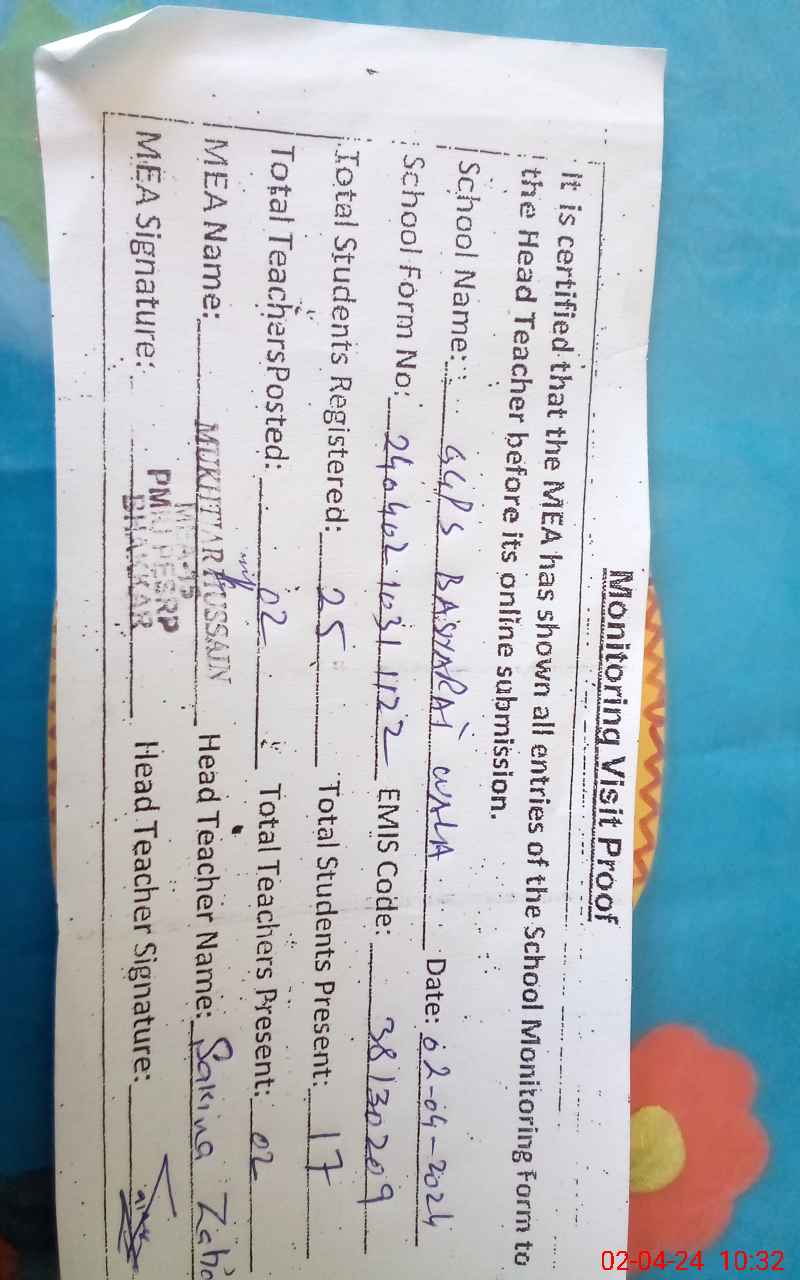 Monitoring Visit Proof
It is certified that the MEA has shown all entries of the School Monitoring Form to
the Head Teacher before its online submission.
School Name: GGPS BASYARAI WALA Date: 02-04-2024
School Form No: 2404021031122 EMIS Code: 38130209
Total Students Registered: 25 Total Students Present: 17
Total TeachersPosted: 02 Total Teachers Present: 02
MEA Name: MUKHTAR HUSSAIN Head Teacher Name: Sakina
MEA Signature: Head Teacher Signature:
PMIU PESRP
BHAKKAR
02-04-24 10:32